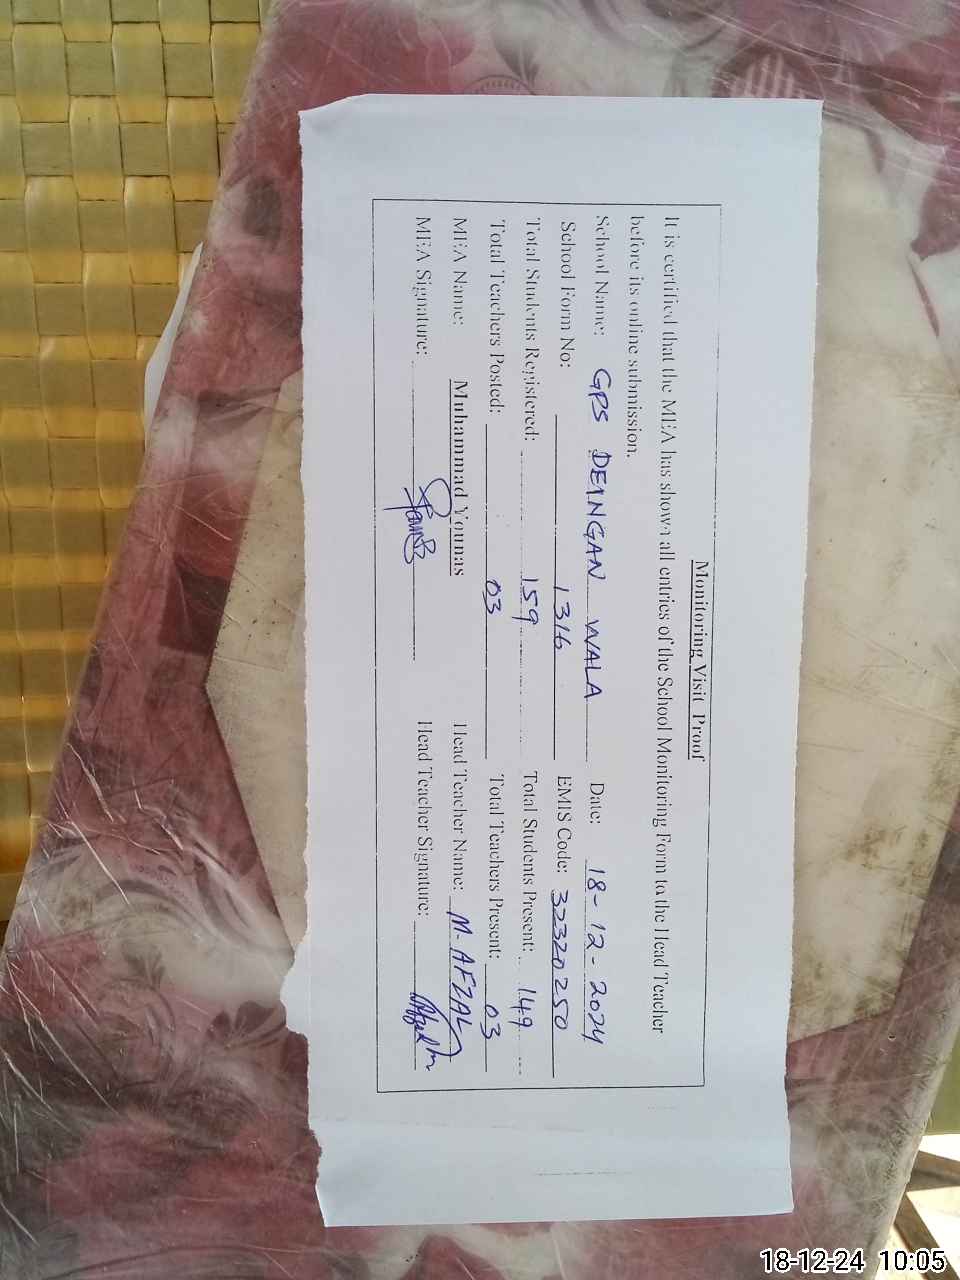 Monitoring Visit Proof
It is certified that the MEA has shown all entries of the School Monitoring Form to the Head Teacher
before its online submission.
School Name: GPS DEINGAN WALA Date: 18-12-2024
School Form No: 1316 EMIS Code: 32320250
Total Students Registered: 159 Total Students Present: 149
Total Teachers Posted: 03 Total Teachers Present: 03
MEA Name: Muhammad Younas Head Teacher Name: M-AFZAL
MEA Signature: Head Teacher Signature:
18-12-24 10:05